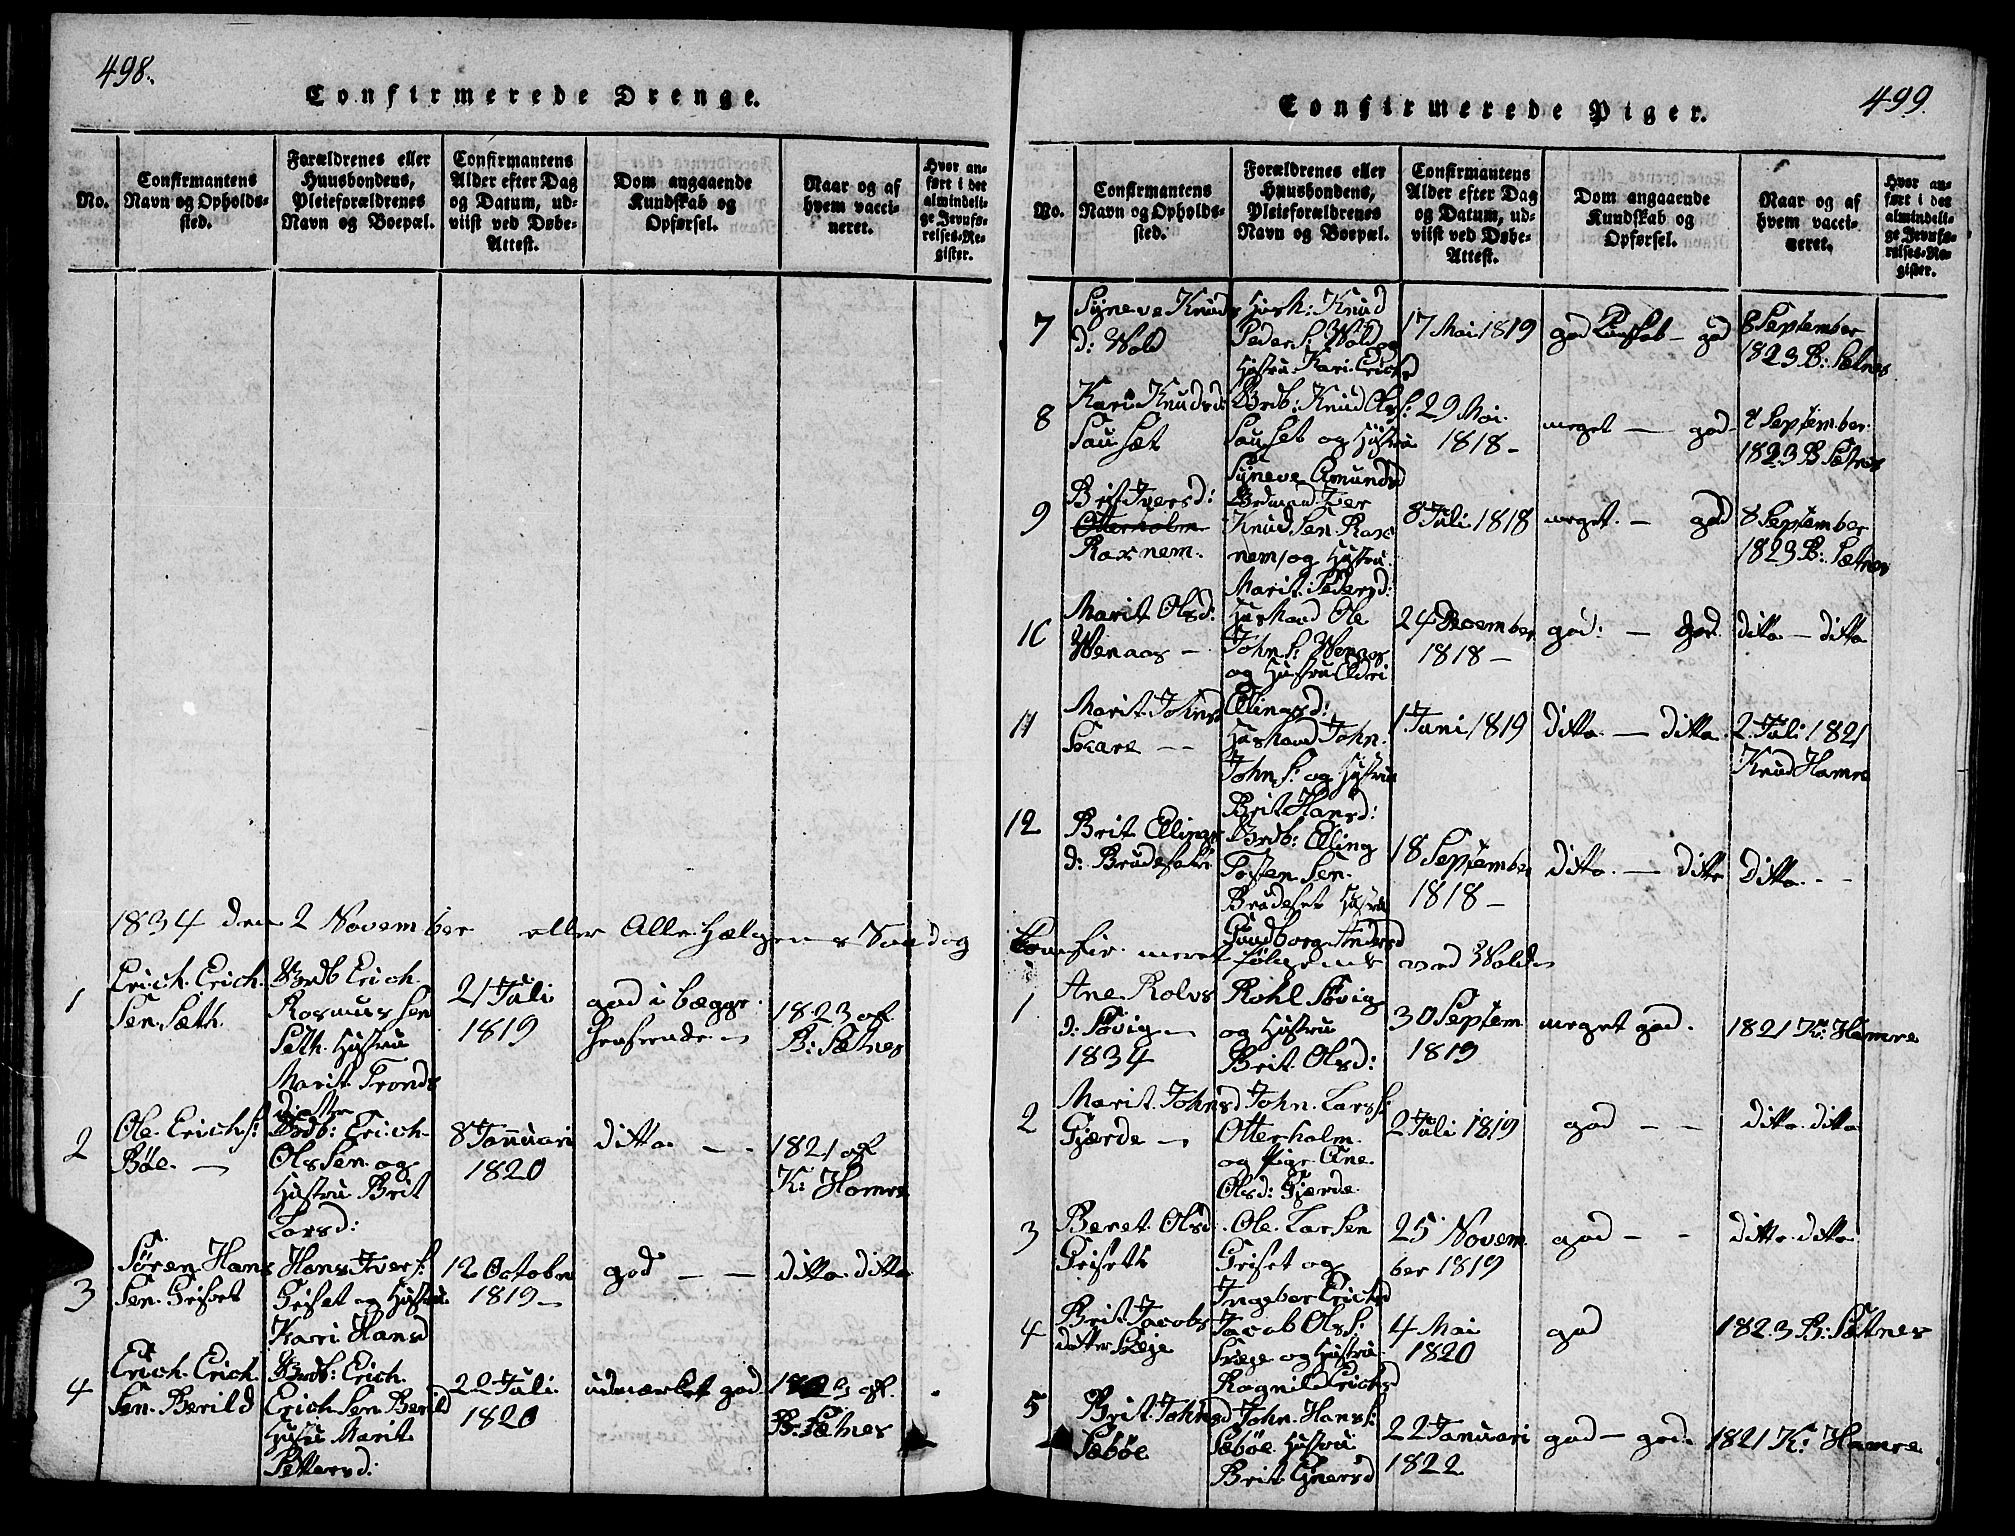 498.
Confirmerede Drenge.
No.
Confirmantens
Navn og Opholds-
sted.
Forældrenes eller
Huusbondens,
Pleieforældrenes
Navn og Boepæl.
Confirmantens
Alder efter Dag
og Datum, ud-
viist ved Døbe-
Attest.
Dom angaaende
Kundskab og
Opførsel.
Naar og af
hvem vacci-
neret.
Hvor an-
ført i det
almindeli-
ge Jevnfø-
relses-Re-
gister.
1834 den 2 November eller Alle Hælgens Søndag
1
Erich Erich
Sen Sæth.
Brdb Erich
Rasmus Sen
Seth. Hustru
Marit Tronds
datter
21 Juli
1819
god i begge
Henseende
1823 af
B: Sætnes
2
Ole Erichs:
Böe. —
Brdb: Erich
Ols Sen og
Hustru Brit
Larsd:
8 Januari
1820
ditto - -
1821 af
K: Hamre
3
Sören Hans
Sen. Griset
Hans Ivers:
Griset og Hustru
Kari Hansd
12 Octobr
1819 —
god — —
ditto ditto
4
Erich Erich
Sen. Berild
Brdb: Erich
Erich Sen Berild
Marit
Pettersd:
22 Juli
1820
udmærket god
af
B: Sætnes
499.
Confirmerede Piger.
No.
Confirmantens
Navn og Opholds-
sted.
Forældrenes eller
Huusbondens,
Pleieforældrenes
Navn og Boepæl.
Confirmantens
Alder efter Dag
og Datum, ud-
viist ved Døbe-
Attest.
Dom angaaende
Kundskab og
Opførsel.
Naar og af
hvem vacci-
neret.
Hvor an-
ført i det
almindeli-
ge Jevnfø-
relses-Re-
gister.
7
Syneve Knuds
d: Wold
Husm: Knud
Peder S: Wold og
Hustru Kari Erichsd
17 Mai 1819
god — god
8 September
1823 B: Sætnes
8
Kari Knudsd
Sausæt
Brdb: Knud Ols S:
Sauset og Hustru
Syneve Amundsd
29 Mai
1818 —
meget — god
8 September
1823 B Sætnes
9
Brit Iversd:
Otterholm
Roxnem.
Brdmand Iver
Knud Sen Rox
nem og Hustru
Marit Pedersd:
8 Juli 1818
meget — god
8 September
1823 B: Sætnes
10
Marit Olsd:
Wenaas —
Husmand Ole
John S: Wenaas
og Hustru Elderi
Ellingsd:
24 December
1818 —
god: — god
ditto — ditto
11
Marit Johnsd
Skare — —
Husmand John
John S: og Hustru
Brit Hansd:
1 Juni 1819
ditto — ditto
2 Juli 1821
Knud Hamre
12
Brit Ellings
d: Brudeset
Brdb: Elling
Tosten Sen
Brudeset Hustru
Gundborg Andersd
18 September
1818 —
ditto — ditto
ditto - -
Confirmeret følgende ved Wold
1
Ane Rolvs
d: Søvig —
1834
Rohl Søvig
og Hustru
Brit Olsd:
30 Septem
1819
meget god.
1821 K: Hamre
2
Marit Johnsd
Gjærde —
John Lars S:
Otterholm
og Pige Ane
Olsd: Gjærde
2 Juli 1819
god - -
ditto ditto
3
Beret Olsd:
Grisets
Ole Larsen
Griset og
Ingebor Erichsd
25 Novem
ber 1819
god - -
ditto ditto
4
Brit Jacobs
datter Skeje
Jacob Ols S:
Skeje og Hustru
Ragnild Erichsd
4 Mai
1820
god
1823 B: Sætnes
5
Brit Johnsd
Sæböe
John Hans S:
Sæböe Hustru
Brit
22 Januari
1822
god — god
1821 K: Hamre